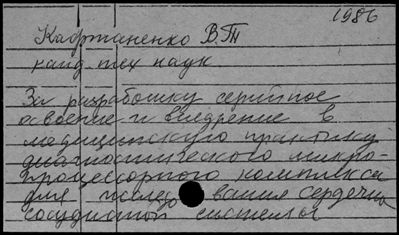 1986
Кафтаненко В.Т
канд тех наук
За разработку серийное
освоение и внедрение в
медицинскую практику
диагностического микро-
процессорного комплекса
для исследования сердечно
сосудистой системы